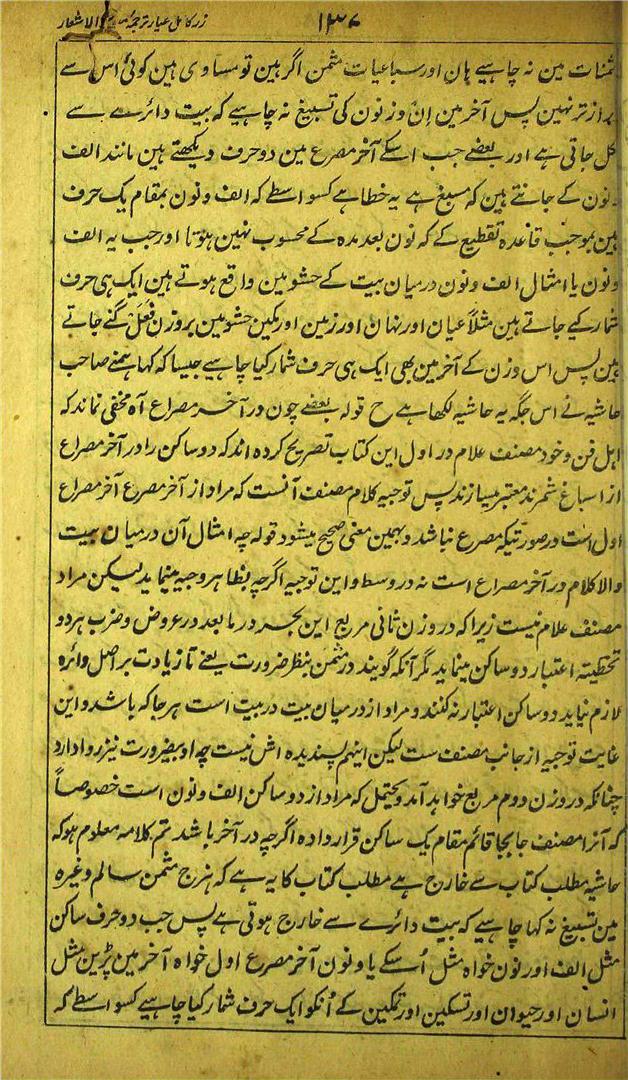 زر کامل عیار ترجمۂ معیار الاشعار
۱۳۷
مثمنات مین نہ چاہیے ہان اور سباعیات مثمن اگر ہین تو مساوی ہین کوئی اس سے
دراز تر نہین پس آخر مین اِنّ وزنون کی تسبیغ نہ چاہیے کہ بیت دائرے سے
نکل جاتی ہے اور بعضے جب اسکے آخر مصرع مین دو حرف دیکھتے ہین مانند الف
ونون کے جانتے ہین کہ مسبغ ہے یہ خطا ہے کسواسطے کہ الف ونون بمقام یک حرف
ہین بموجب قاعدہ تقطیع کے کہ نون بعد مدہ کے محسوب نہین ہوتا اور جب یہ الف
ونون یا امثال الف ونون درمیان بیت کے حشو مین واقع ہوتے ہین ایک ہی حرف
شمار کیے جاتے ہین مثلاً عیان اور نہان اور زمین اور مکین حشو مین بروزن فَعَلْ گنے جاتے
ہین پس اس وزن کے آخر مین بھی ایک ہی حرف شمار کیا چاہیے جیسا کہ کہا ہمنے صاحب
حاشیہ نے اس جگہ یہ حاشیہ لکھا ہے ح قولہ بعضے چون در آخر مصراع آہ مخفی نماند کہ
اہل فن و خود مصنف علام در اول این کتاب تصریح کردہ اند کہ دو ساکن را در آخر مصراع
از اسباغ شمرند معتبر میسازند پس توجیہ کلام مصنف آنست کہ مراد از آخر مصرع آخر مصراع
اول است در صورتیکہ مصرع نباشد وبہمین معنی صحیح میشود قولہ چہ امثال آن درمیان بیت
والا کلام در آخر مصراع است نہ در وسط و این توجیہ اگرچہ بظاہر وجیہ مینماید لیکن مراد
مصنف علام نیست زیرا کہ در وزن ثانی مربع این بحر در ما بعد در عروض وضرب ہر دو
تحقیقۃ اعتبار دو ساکن مینماید مگر آنکہ گویند در مثمن بنظر ضرورت یعنے تا زیادت بر اصل دائرہ
لازم نیاید دو ساکن اعتبار نہ کنند و مراد از درمیان بیت در بیت است ہر جا کہ باشد و این
غایت توجیہ از جانب مصنف ست لیکن اینہم پسندیدہ اش نیست چہ او بیضرورت نیز روا دارد
چنانکہ در وزن دوم مربع خواہد آمد ویحتمل کہ مراد از دو ساکن الف ونون است خصوصاً
کہ آنرا مصنف جابجا قائم مقام یک ساکن قرار دادہ اگرچہ در آخر باشد تم کلامہ معلوم ہو کہ
حاشیہ مطلب کتاب سے خارج ہے مطلب کتاب کا یہ ہے کہ ہزج مثمن سالم وغیرہ
مین تسبیغ نہ کہا چاہیے کہ بیت دائرے سے خارج ہوتی ہے پس جب دو حرف ساکن
مثل الف اور نون خواہ مثل اُسکے یا ونون آخر مصرع اول خواہ آخر مین پڑین مثل
انسان اور حیوان اور تسکین اور تمکین کے اُنکو ایک حرف شمار کیا چاہیے کسواسطے کہ